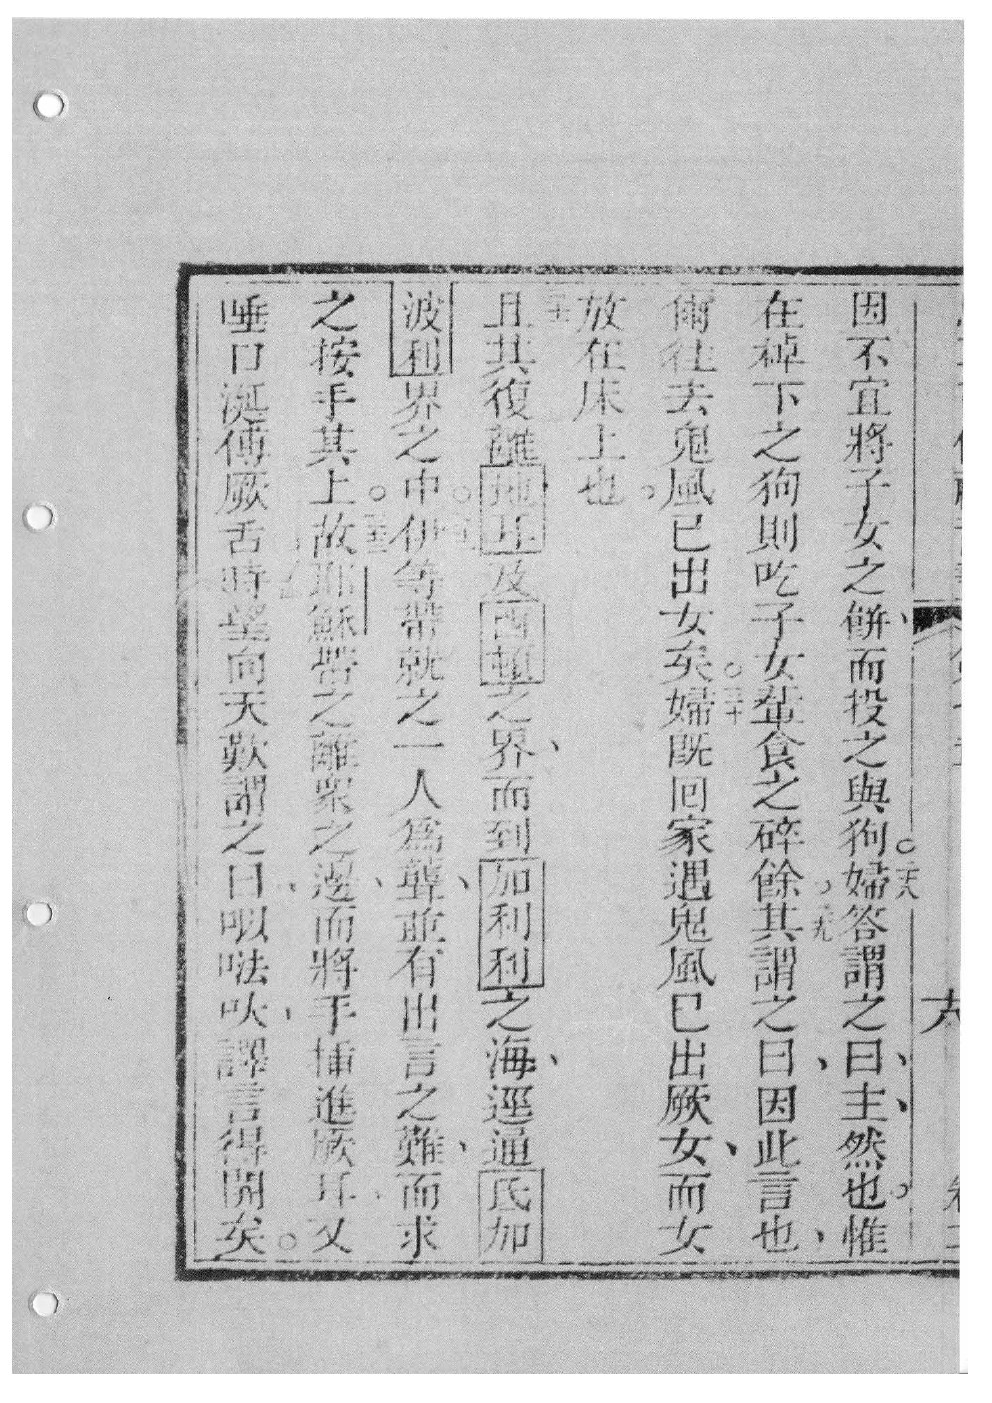 因不宜將子女之餅、而投之與狗。二八婦答謂之曰、主、然也。惟
在棹下之狗則吃子女輩食之碎餘。二九其謂之曰、因此言也、
爾往去鬼風已出女矣。三十婦既回家遇鬼風已出厥女、而女
放在床上也。
三一且其復離地耳及西頓之界、而到加利利之海、逕通氐加
波利界之中。三二伊等帶就之一人爲聾、並有出言之難、而求
之按手其上。三三故耶穌帶之離衆之邊、而將手插進厥耳、又
唾口涎傅厥舌時望向天歎謂之曰、呬㗒吠、譯言得開矣。